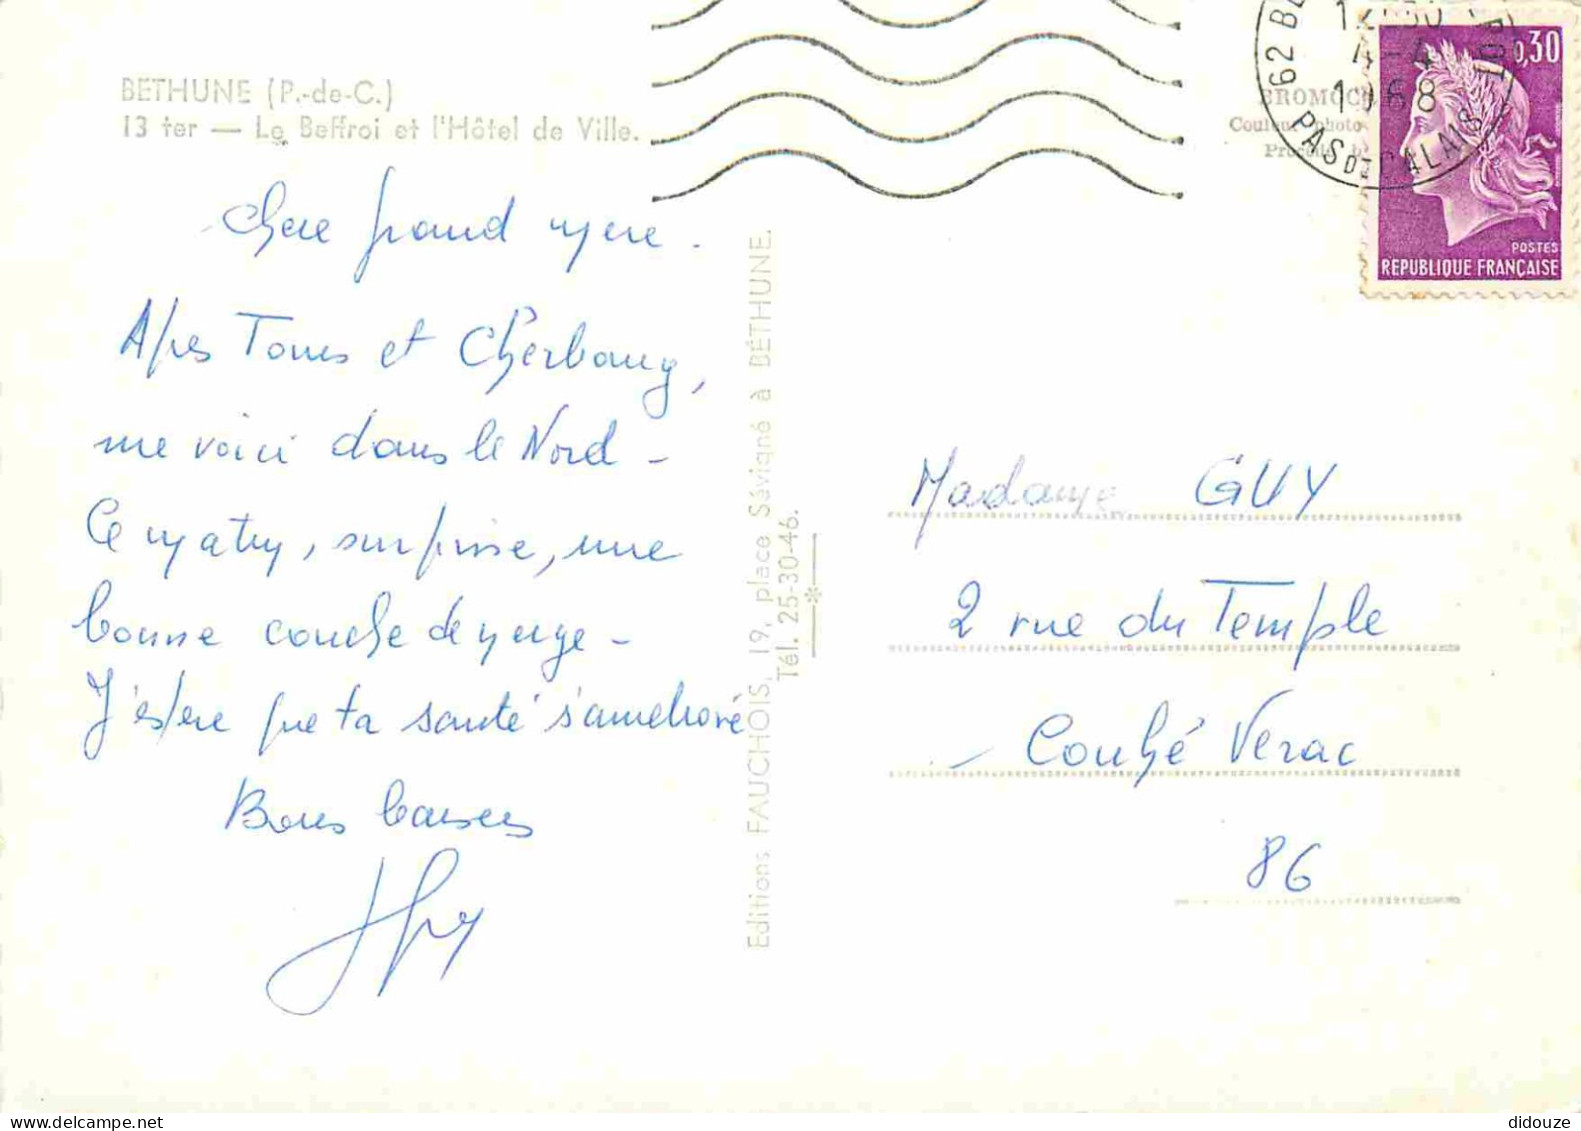 BETHUNE (P.-de-C.)
13 ter — Le Beffroi et l'Hôtel de Ville.
Chere grand mere.
Apres Tours et Cherbourg,
me voici dans le Nord -
Ce matin, surprise, une
bonne couche de neige -
J'espere que ta santé s'améliore
Bons baisers
Editions FAUCHOIS, 19, place Sévigné à BÉTHUNE.
Tél. 25-30-46.
62 BE
12 30
4-4
1968
PAS DE CALAIS
BROMOC
Couleur photo
Procédé b
0,30
POSTES
REPUBLIQUE FRANÇAISE
Madame GUY
2 rue du Temple
Couhé Verac
86
didouze